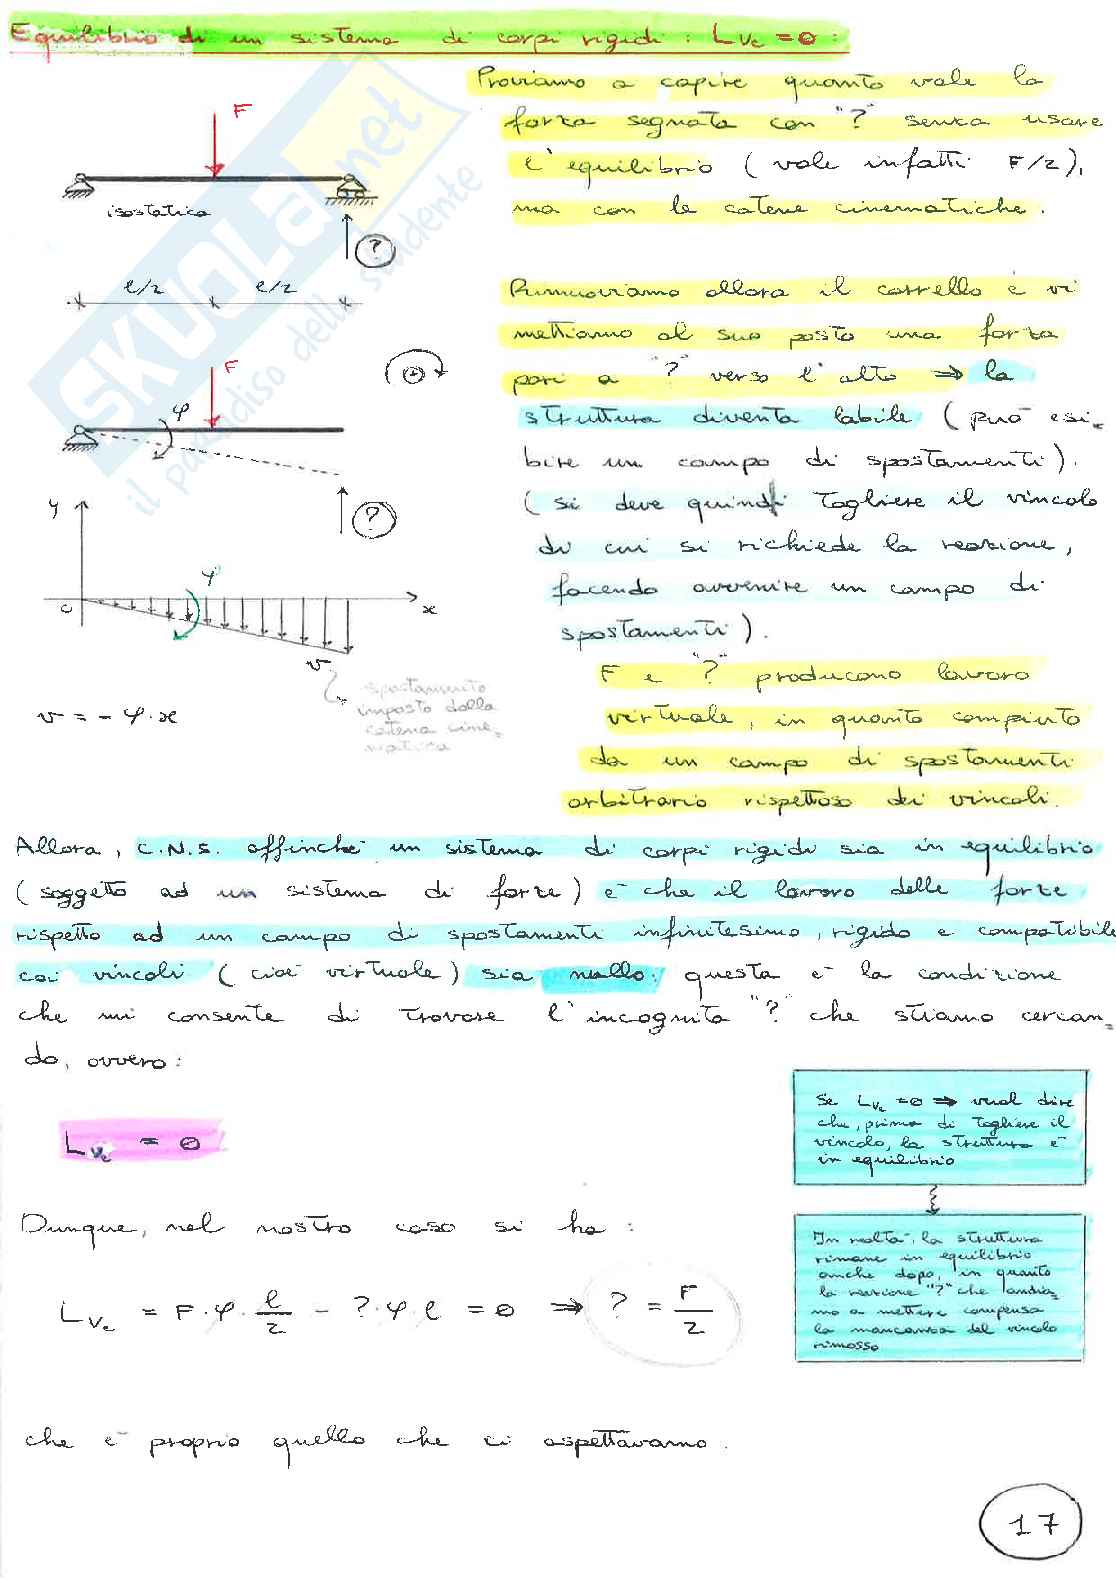 Equilibrio di un sistema di corpi rigidi: Lve = 0:
Proviamo a capire quanto vale la
forza segnata con "?" senza usare
l'equilibrio (vale infatti F/2),
ma con le catene cinematiche.
F
isostatica
?
l/2 l/2
Rimuoviamo allora il carrello e vi
mettiamo al suo posto una forza
pari a "?" verso l'alto ⇒ la
struttura diventa labile (può esi-
bire un campo di spostamenti).
(si deve quindi togliere il vincolo
di cui si richiede la reazione,
facendo avvenire un campo di
spostamenti).
F
+
φ
?
y
φ
o
x
v
spostamento
imposto dalla
catena cine-
matica
v = - φ · x
F e "?" producono lavoro
virtuale, in quanto compiuto
da un campo di spostamenti
arbitrario rispettoso dei vincoli.
Allora, C.N.S. affinché un sistema di corpi rigidi sia in equilibrio
(soggetto ad un sistema di forze) è che il lavoro delle forze
rispetto ad un campo di spostamenti infinitesimo, rigido e compatibile
coi vincoli (cioè virtuale) sia nullo: questa è la condizione
che mi consente di trovare l'incognita "?" che stiamo cercan-
do, ovvero:
Lve = 0
Se Lve = 0 ⇒ vuol dire
che, prima di togliere il
vincolo, la struttura è
in equilibrio
In realtà, la struttura
rimane in equilibrio
anche dopo, in quanto
la reazione "?" che andia-
mo a mettere compensa
la mancanza del vincolo
rimosso
Dunque, nel nostro caso si ha:
Lve = F · φ · l/2 - ? · φ l = 0 ⇒ ? = F/2
che è proprio quello che ci aspettavamo.
17
SKUOLA.net
il paradiso dello studente